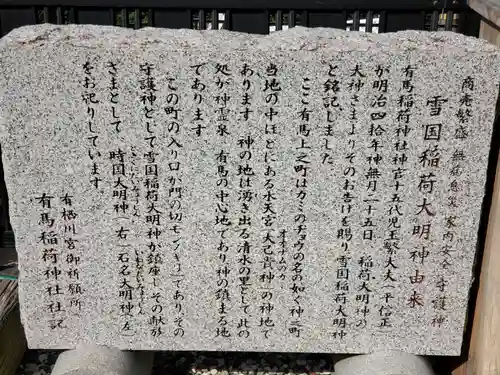 商売繁盛 無病息災 家内安全 守護神
雪国稲荷大明神由来
有馬稲荷神社神官十五代児玉繁大夫(平信正
が明治四拾年神無月二十五日 稲荷大明神の
大神さまよりそのお告げを賜り、雪国稲荷大明神
と銘記しました。
ここ有馬上之町はカミのチョウの名の如く神之町
オオナムのカミ
当地の中ほどにある水天宮大己貴神の神地で
あります。神の地は湧き出る清水の里として此の
処が神霊泉 有馬の中心地であり神の鎮まる地
であります
この町の入り口が門の切モンノキリ」であり、その
守護神として雪国稲荷大明神が鎮座し その献が
さまとして 時国大明神(右) 石名大明神(左)
をお祀りしています
有栖川宮御祈願所
有馬稲荷神社社記